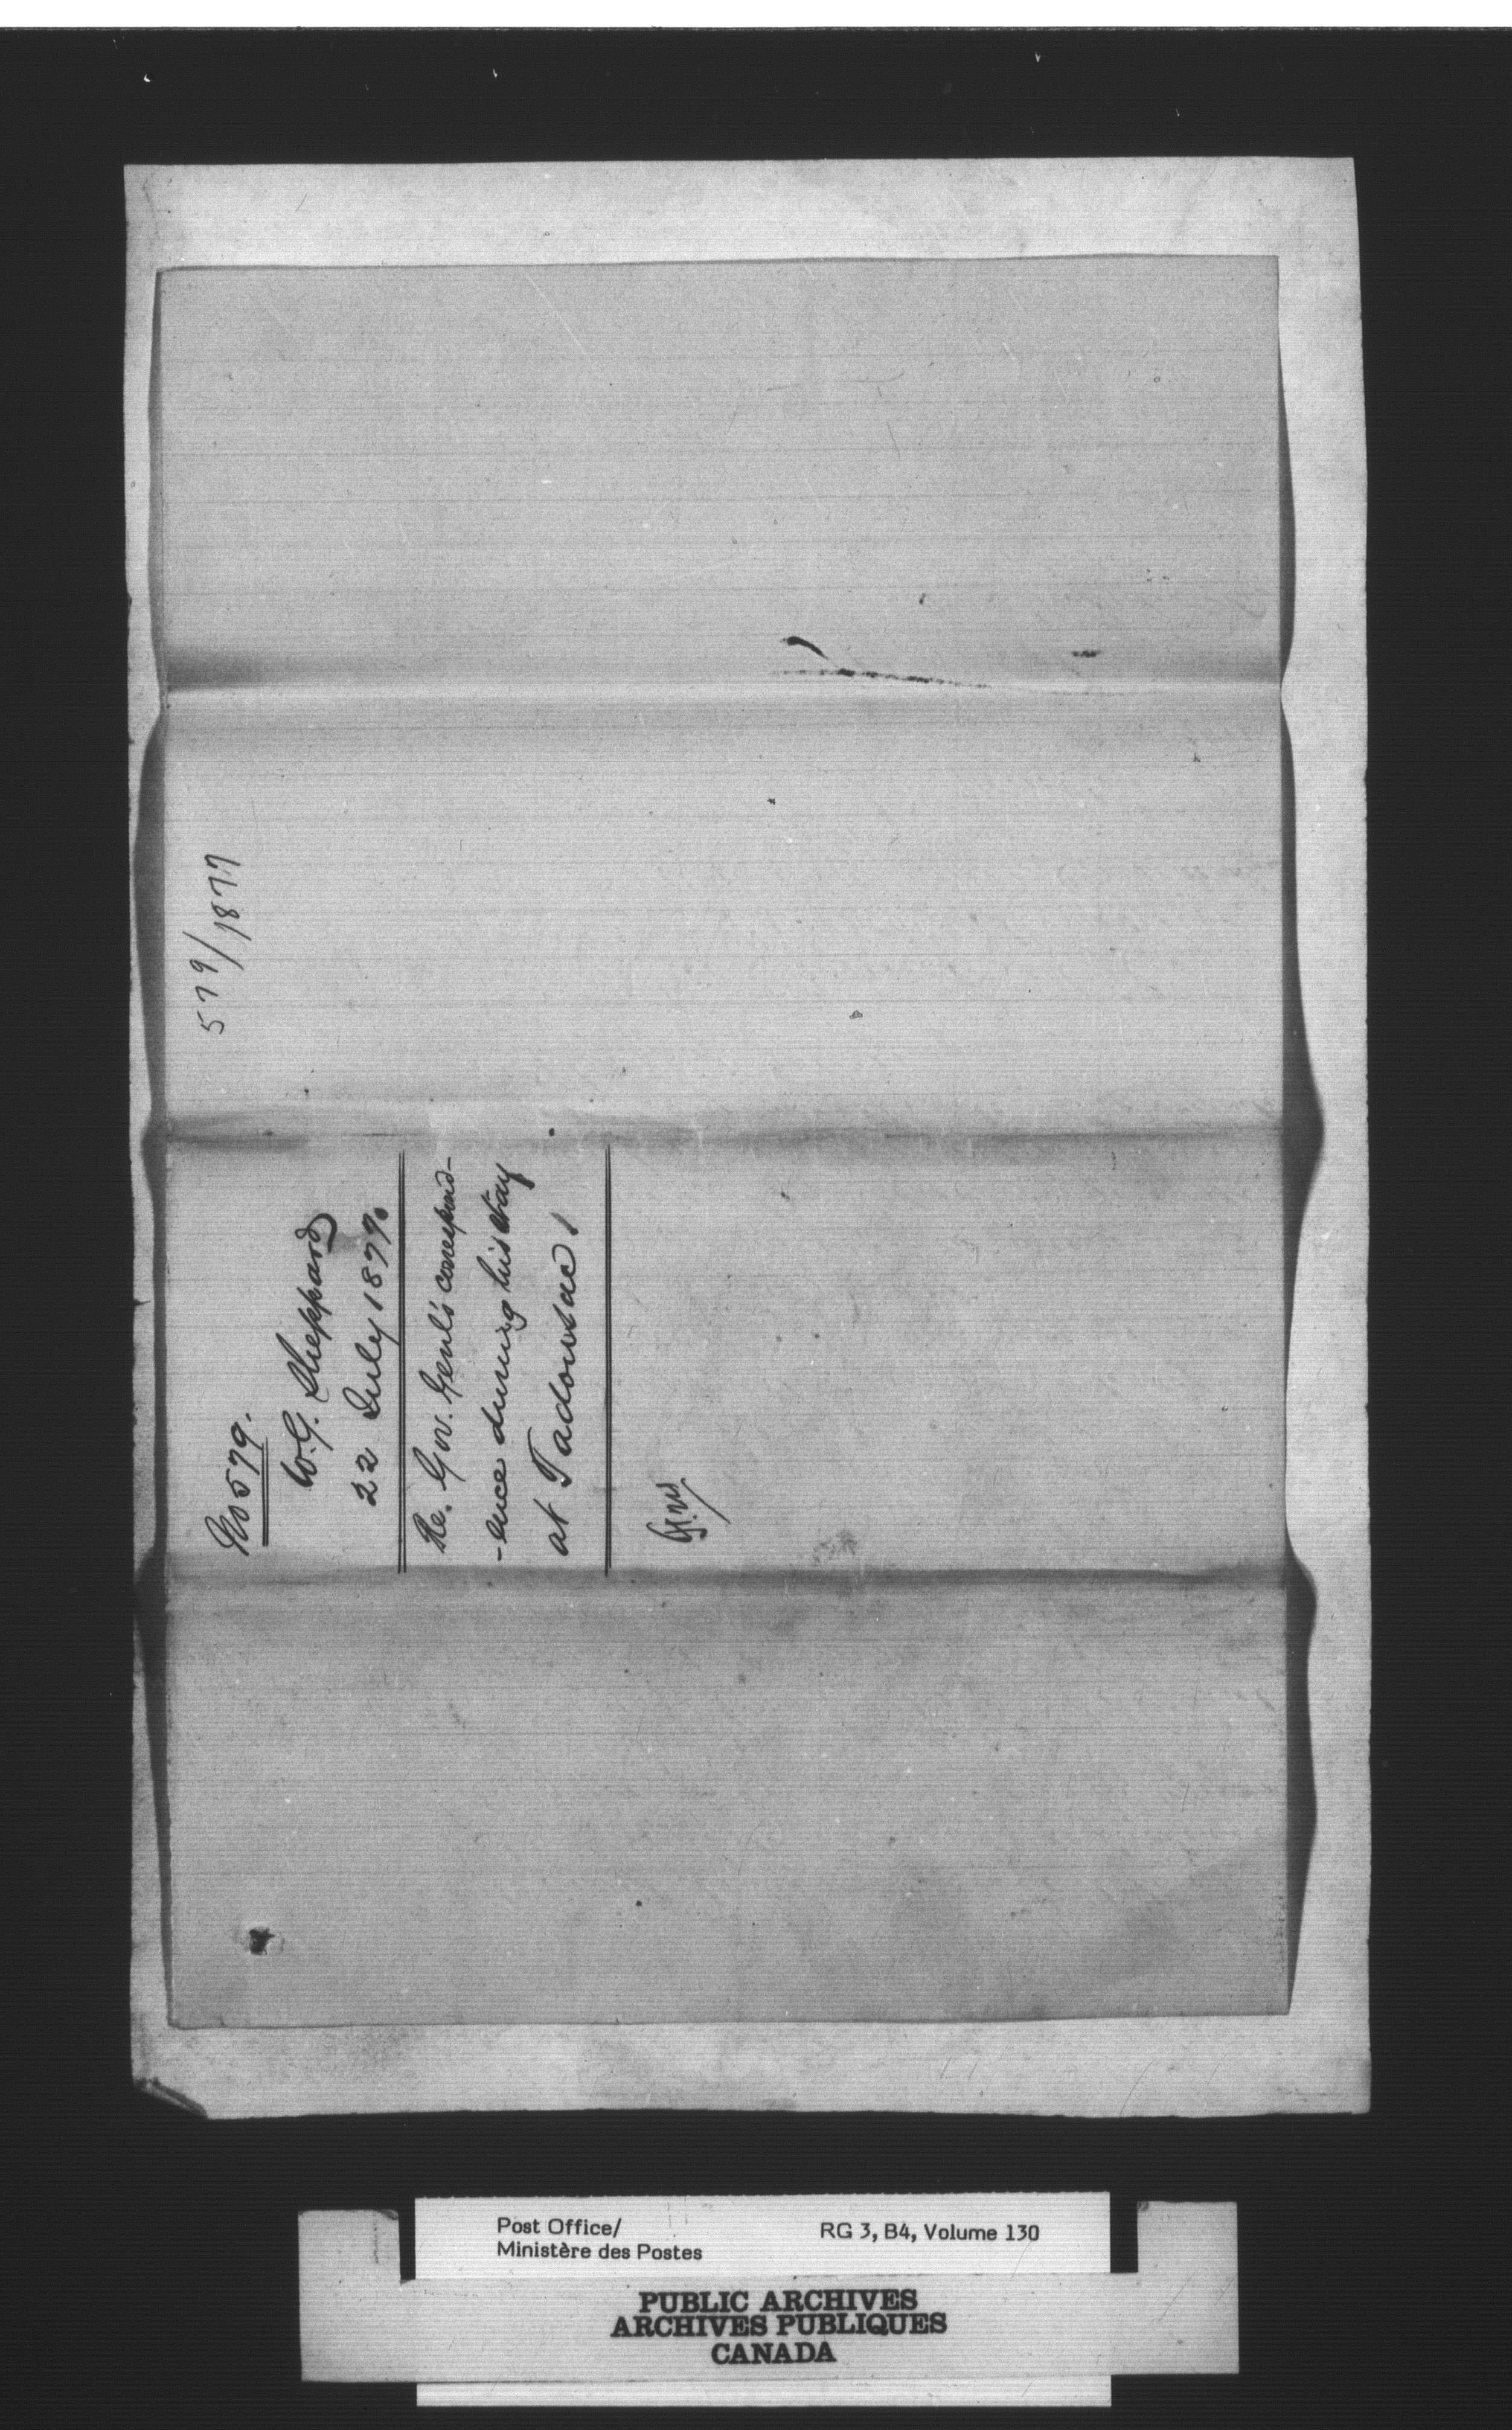 579/1877
No 579.
W.G. Sheppard
22 July 1877.
Re. Gov. Genl's correspond-
-ence during his stay
at Tadousac
Post Office/
Ministère des Postes
RG 3, B4, Volume 130
PUBLIC ARCHIVES
ARCHIVES PUBLIQUES
CANADA